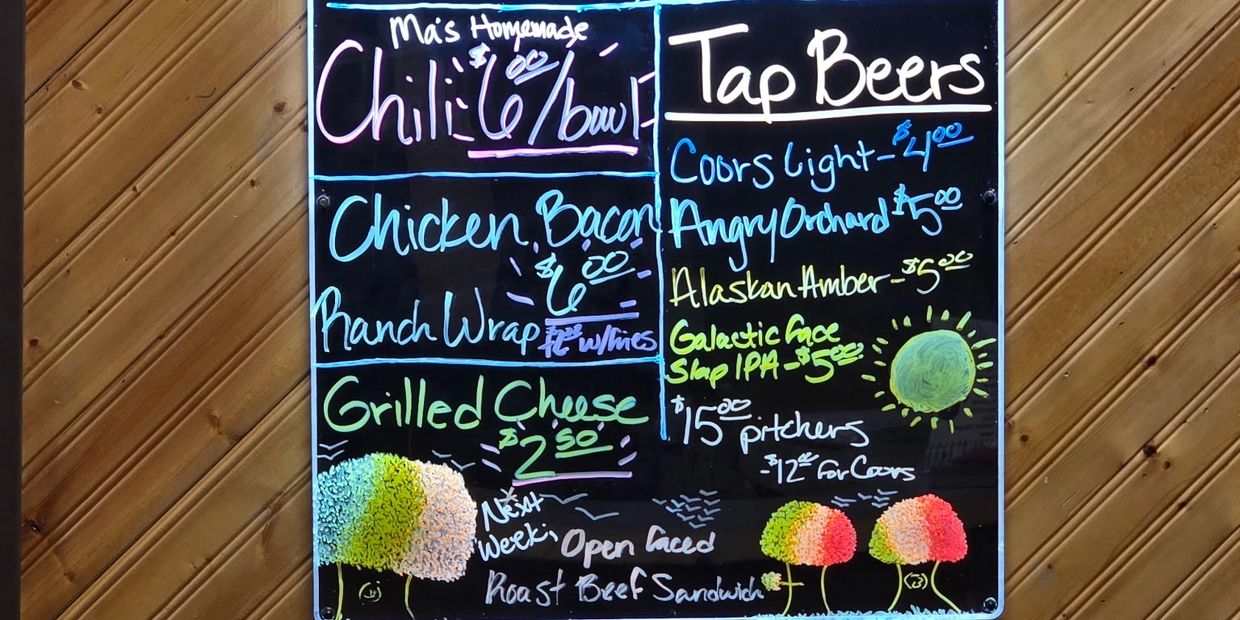 Ma's Homemade
Chili $6.00/bowl
Chicken Bacon
$6.00
Ranch Wrap w/fries
Grilled Cheese
$2.50
Next
Week:
Open Faced
Roast Beef Sandwich
Tap Beers
Coors Light - $4.00
Angry Orchard $5.00
Alaskan Amber - $5.00
Galactic Face
Slap IPA - $5.00
$15.00 pitchers
- $12.00 for Coors